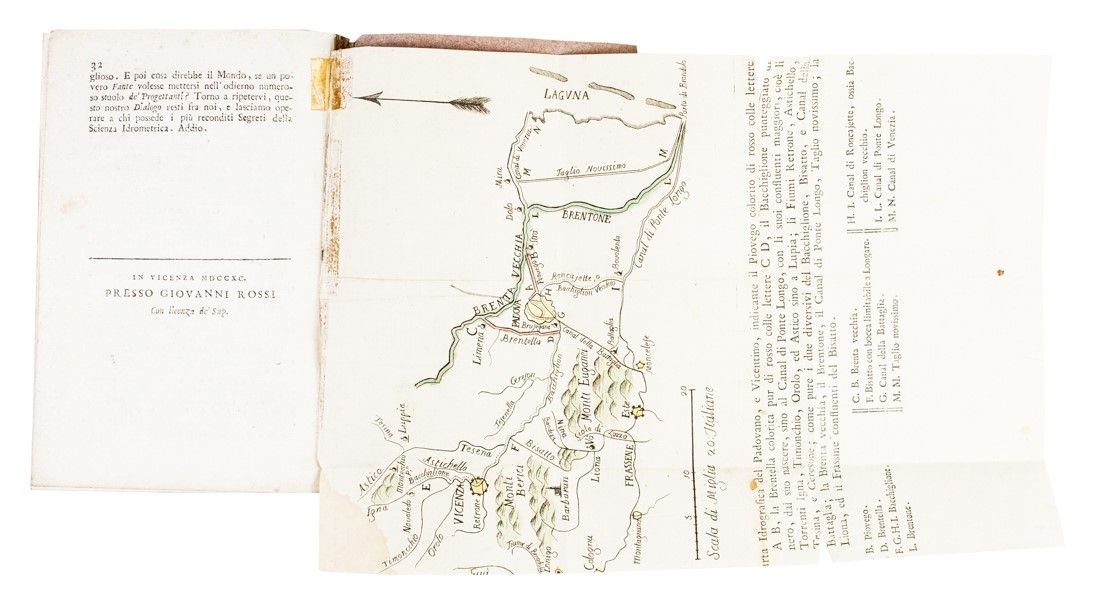 32
glioso. E poi cosa direbbe il Mondo, se un po-
vero Fante volesse mettersi nell'odierno numero-
so stuolo de' Progettanti? Torno a ripetervi, que-
sto nostro Dialogo resti fra noi, e lasciamo ope-
rare a chi possede i più reconditi Segreti della
Scienza Idrometrica. Addio.
IN VICENZA MDCCXC.
PRESSO GIOVANNI ROSSI
Con licenza de' Sup.
LAGUNA
Porto di Brondolo
N
Canal di Venezia
Mira
M
M
Taglio Novissimo
L
Dolo
I
BRENTONE
Canal di Ponte Longo
BRENTA VECCHIA
Strà
B
Piovego
A
PADOVA
H
Roncajette
Bacchiglion Vecchio
Bovolenta
I
G
C
Limena
Brusegana
D
Brentella
Canal della Battaglia
Battaglia
Moncelese
Monti Euganei
Este
Bacchiglion
Cereson
Tesenella
Lupia
Tesena
Astico
Igna
Montechio
Astichello
Bacchiglione
E
Novoledo
Timonchio
Orolo
VICENZA
Retrone
F
Bisatto
Monti
Berici
Barbaran
Lozzo
Liona
FRASSENE
Cologna
Montagnana
5
10
20
Scala di Miglia 20. Italiane
arta Idrografica del Padovano, e Vicentino, indicante il Piovego colorito di rosso colle lettere
A B, la Brentella colorita pur di rosso colle lettere C D, il Bacchiglione punteggiato di
nero, dal suo nascere, sino al Canal di Ponte Longo, con li suoi confluenti maggiori, cioè li
Torrenti Igna, Timonchio, Orolo, ed Astico sino a Lupia; li Fiumi Retrone, Astichello,
Tesina, e Ceresone; come pure i due diversivi del Bacchiglione, Bisatto, e Canal della
Battaglia; la Brenta vecchia, il Brentone, il Canal di Ponte Longo, Taglio novissimo; la
Liona, ed il Frassine confluenti del Bisatto.
B. Piovego.
D. Brentella.
F. G. H. I. Bacchiglione.
L. Brentone.
C. B. Brenta vecchia.
F. Bisatto con bocca limitabile a Longare.
G. Canal della Battaglia.
M. M. Taglio novissimo.
H. I. Canal di Roncajette, ossia Bac-
chiglion vecchio.
I. L. Canal di Ponte Longo.
M. N. Canal di Venezia.